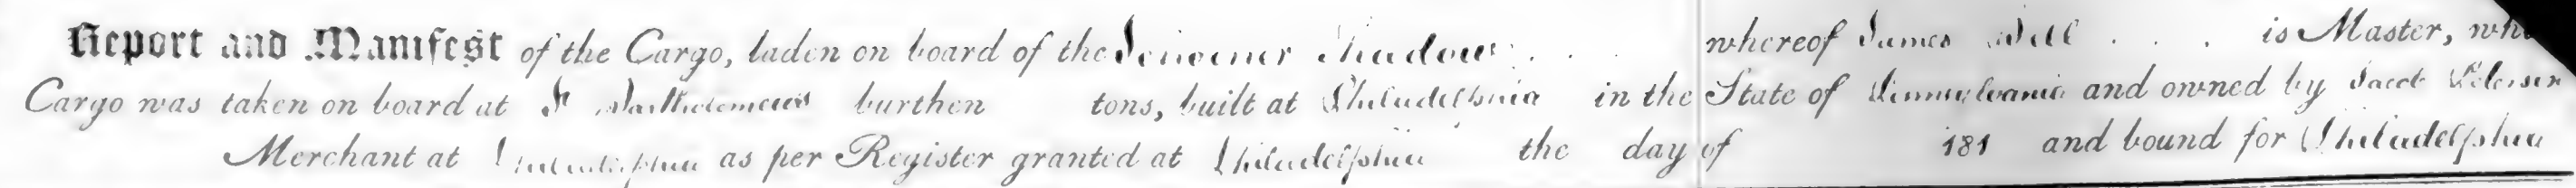 Report and Manifest of the Cargo, laden on board of the Schooner Shadow . . whereof James Will . . . is Master, wh
Cargo was taken on board at St Bartholomews burthen tons, built at Philadelphia in the State of Pennsylvania and owned by Jacob Peterson
Merchant at Philadelphia as per Register granted at Philadelphia the day of 181 and bound for Philadelphia